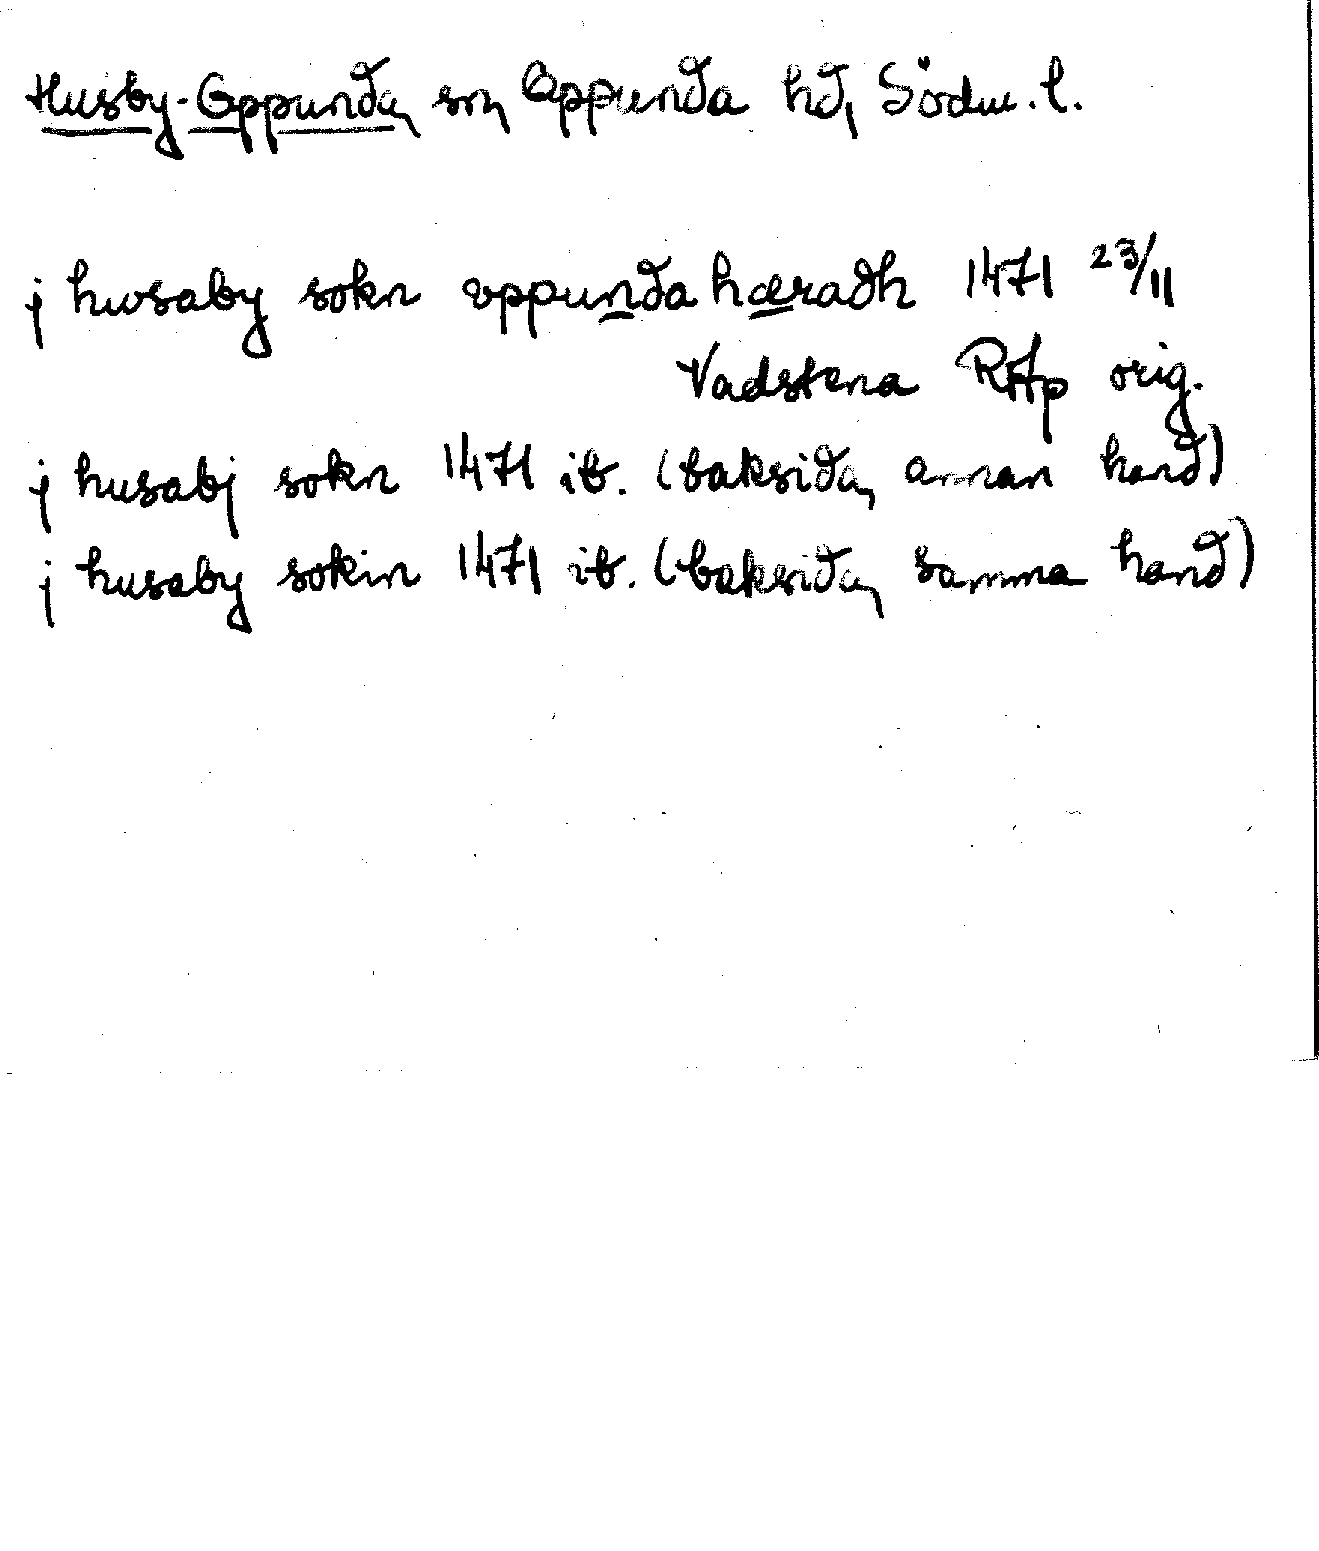 Husby-Oppunda, sn, Oppunda hd, Södm. l.
j hwsaby sokn vppunda hæradh 1471 23/11
Vadstena RAp orig.
j husabj sokn 1471 ib. (baksida, annan hand)
j husaby sokin 1471 ib. (baksida, samma hand)